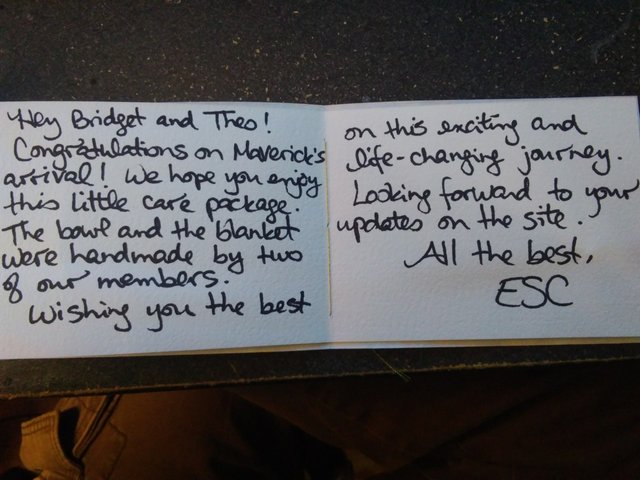 Hey Bridget and Theo!
Congratulations on Maverick's
arrival! We hope you enjoy
this little care package.
The bowl and the blanket
were handmade by two
of our members.
Wishing you the best
on this exciting and
life-changing journey.
Looking forward to your
updates on the site.
All the best,
ESC